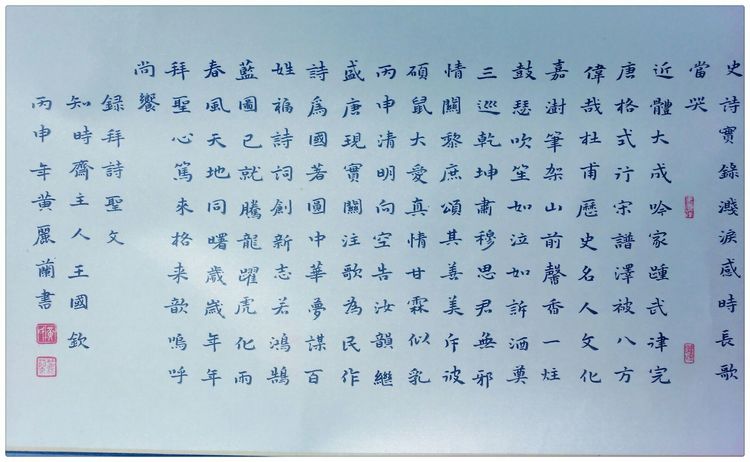 史詩實錄濺淚感時長歌
當哭
近體大成吟家踵武律完
唐格式行宋譜澤被八方
偉哉杜甫歷史名人文化
嘉澍筆架山前馨香一炷
鼓瑟吹笙如泣如訴洒奠
三巡乾坤肅穆思君無邪
情關黎庶頌其善美斥彼
碩鼠大愛真情甘霖似乳
丙申清明向空告汝韻繼
盛唐現實關注歌為民作
詩為國著圓中華夢謀百
姓福詩詞創新志若鴻鵠
藍圖已就騰龍躍虎化雨
春風天地同曙歲歲年年
拜聖心篤來格来歆嗚呼
尚饗
錄拜詩聖文
知時齋主人王國欽
丙申年黃麗蘭書